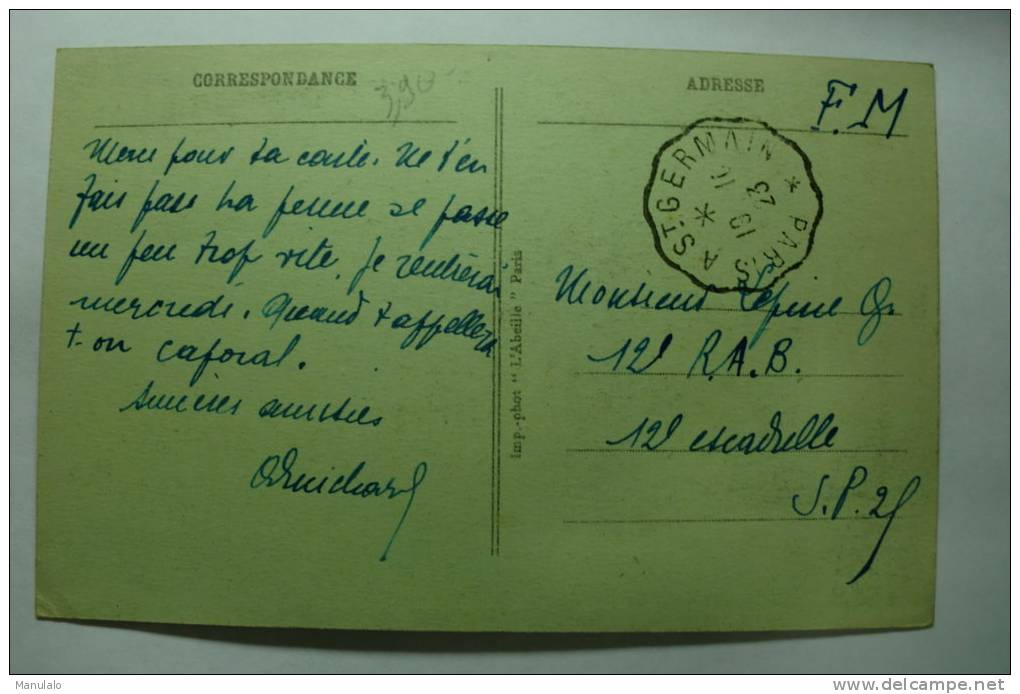 CORRESPONDANCE
3,90
Merci pour ta carte. Ne t'en
fais pas. La perme se passe
un peu trop vite. Je rentrerai
mercredi. Quand t'appellera
t-on caporal.
Sincères amitiés
imp.-phot "L'Abeille" Paris
ADRESSE
F.M
PARIS A ST-GERMAIN
19 16
23
Monsieur Lepine
12e R.A.B.
12e escadrille
S.P. 2
Manulalo
delcampe.net